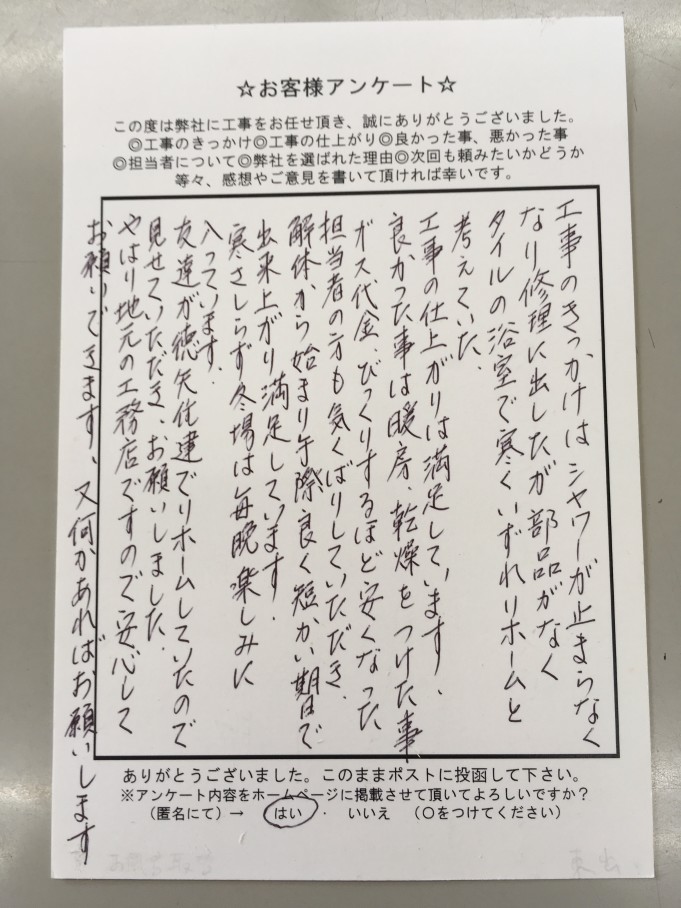 ☆お客様アンケート☆
この度は弊社に工事をお任せ頂き、誠にありがとうございました。
◎工事のきっかけ◎工事の仕上がり◎良かった事、悪かった事
◎担当者について◎弊社を選ばれた理由◎次回も頼みたいかどうか
等々、感想やご意見を書いて頂ければ幸いです。
工事のきっかけはシャワーが止まらなく
なり修理に出したが部品がなく
タイルの浴室で寒くいずれリホームと
考えていた.
工事の仕上がりは満足しています、
良かった事は暖房、乾燥をつけた事
ガス代金、びっくりするほど安くなった
担当者の方も気くばりしていただき、
解体から始まり手際良く短かい期日で
出来上がり満足しています.
寒さしらず冬場は毎晩楽しみに
入っています.
友達が徳矢住建でリホームしていたので
見せていただき、お願いしました.
やはり地元の工務店ですので安心して
お願いできます、又何かあればお願いします
ありがとうございました。このままポストに投函して下さい。
※アンケート内容をホームページに掲載させて頂いてよろしいですか？
（匿名にて）→ はい ・ いいえ （〇をつけてください）